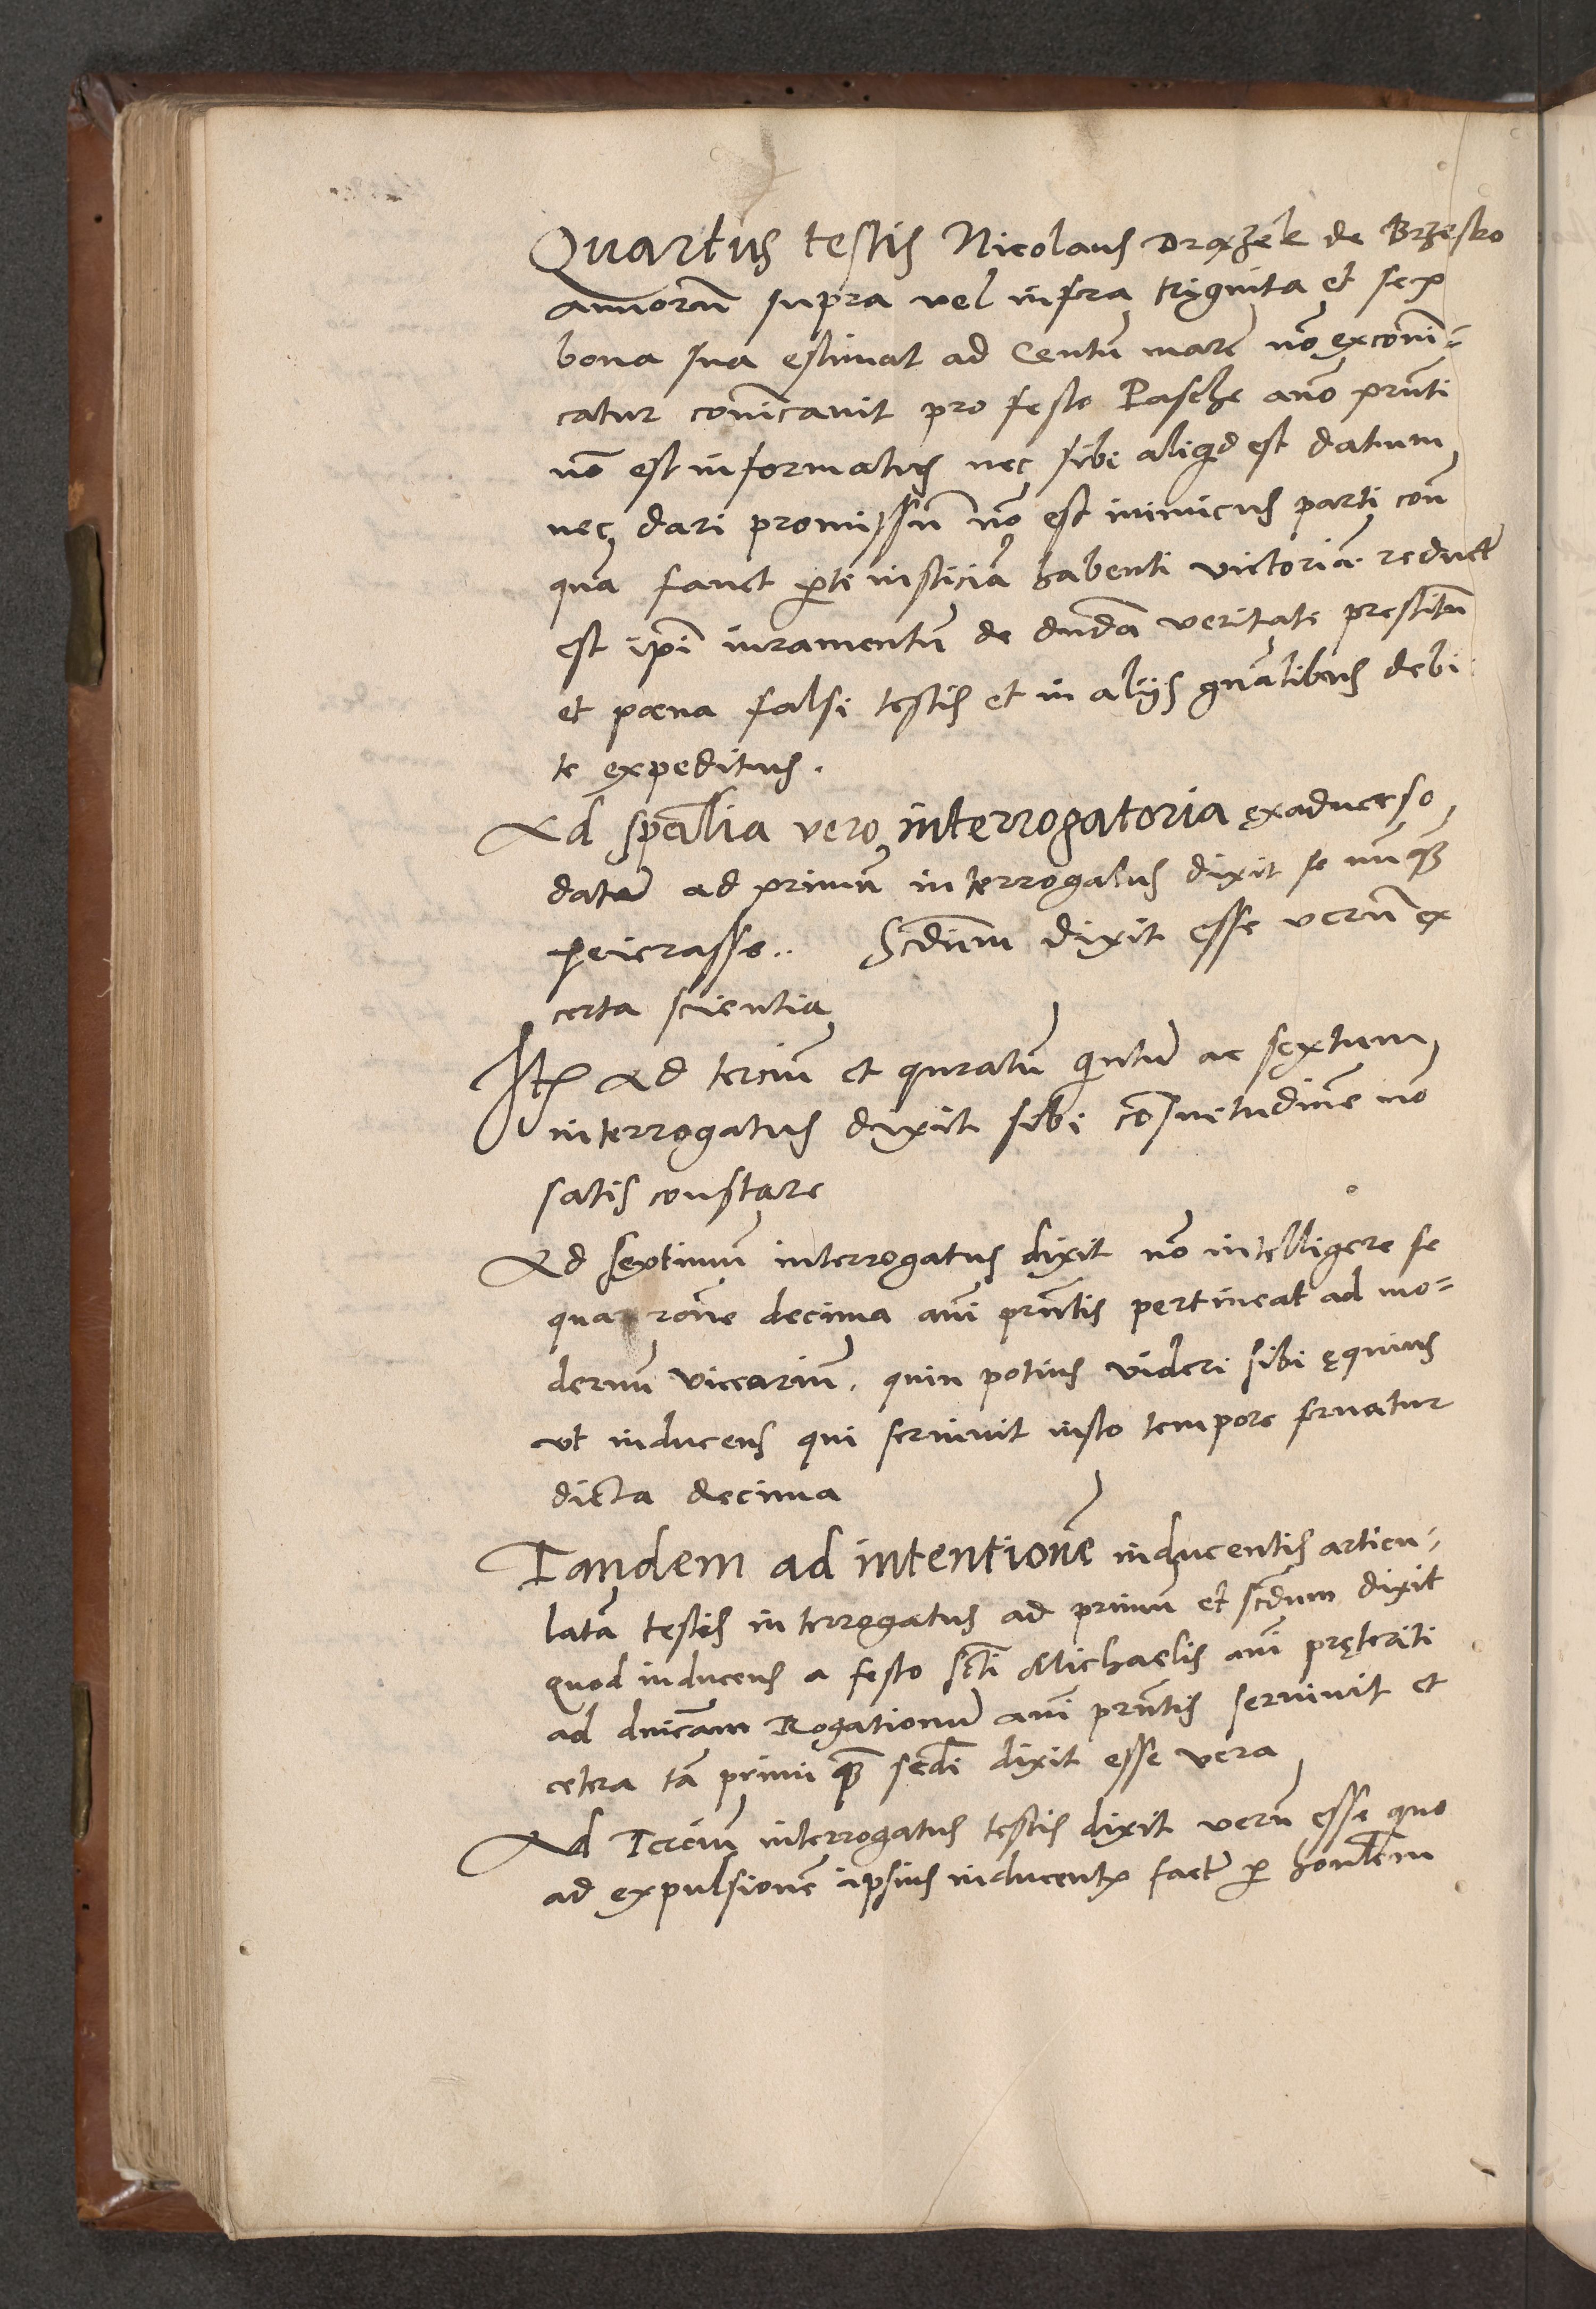 Quartus testis Nicolaus Drązek de Brzesko
annorū supra vel infra triginta et sex
bona sua estimat ad Centū marc nō excōni=
catur cōnicavit pro festo Pasche año prñti
nō est informatus nec sibi aliqd est datum
nec dari promissū nō est inimicus parti con
qua favet parti iusticiā habenti victoriā reduct
est ipi iuramentū de dicēda veritate prestitū
et pœna falsi testis et in aliis gñalibus debi
te expeditus.
Ad spēalia vero interrogatoria exadverso
datar ad primū interrogatus dixit se nūq̄
peierasse.. Scdum dixit esse verū ex
certa scientia
Itē Ad terciū et quratū quintū ac sextum
interrogatus dixit sibi cōsuetudinē nō
satis constare
Ad septimū interrogatus dixit nō intelligere se
qua rōne decima añi prñtis pertineat ad mo=
dernū viccariū, quin potius videri sibi ęquius
ut inducens qui servivit iusto tempore fruatur
dicta decima
Tandem ad intentionē inducentis articu=
latā testis interrogatus ad primū et scdum dixit
quod inducens a festo scti Michaelis añi pręteriti
ad dnicam Rogationū añi prñtis servivit et
cetera tā primi q̄ scdi dixit esse vera
Ad Terciū interrogatus testis dixit verū esse quo
ad expulsionē ipsius inducentis factā p honblem